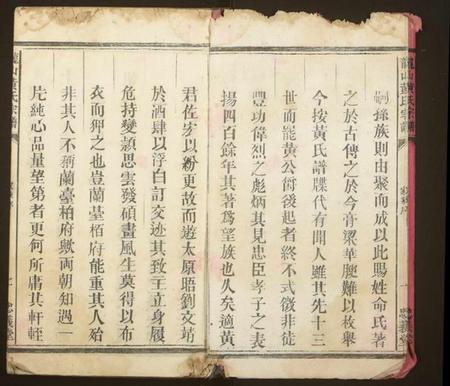 龍山黃氏宗譜
嗣孫族則由聚而成以此賜姓命氏著
之於古傳之於今膏粱華腴難以枚舉
今按黃氏譜牒代有聞人雖其先十三
世而罷黃公衙後起者終不式微非徒
豐功偉烈之彪炳其見忠臣孝子之表
揚四百餘年其著為望族也久矣適黃
忠義堂
君佐安以紛更故而遊太原晤劉文靖
於酒肆以浮白訂交迹其致主立身履
危持變潁思雲發碩畫風生莫得以布
衣而狎之也豈蘭臺栢府能重其人殆
非其人不稱蘭臺柏府歟兩朝知遇一
片純心品量望第者更何所庸其軒輊
龍山黃氏宗譜
忠義堂